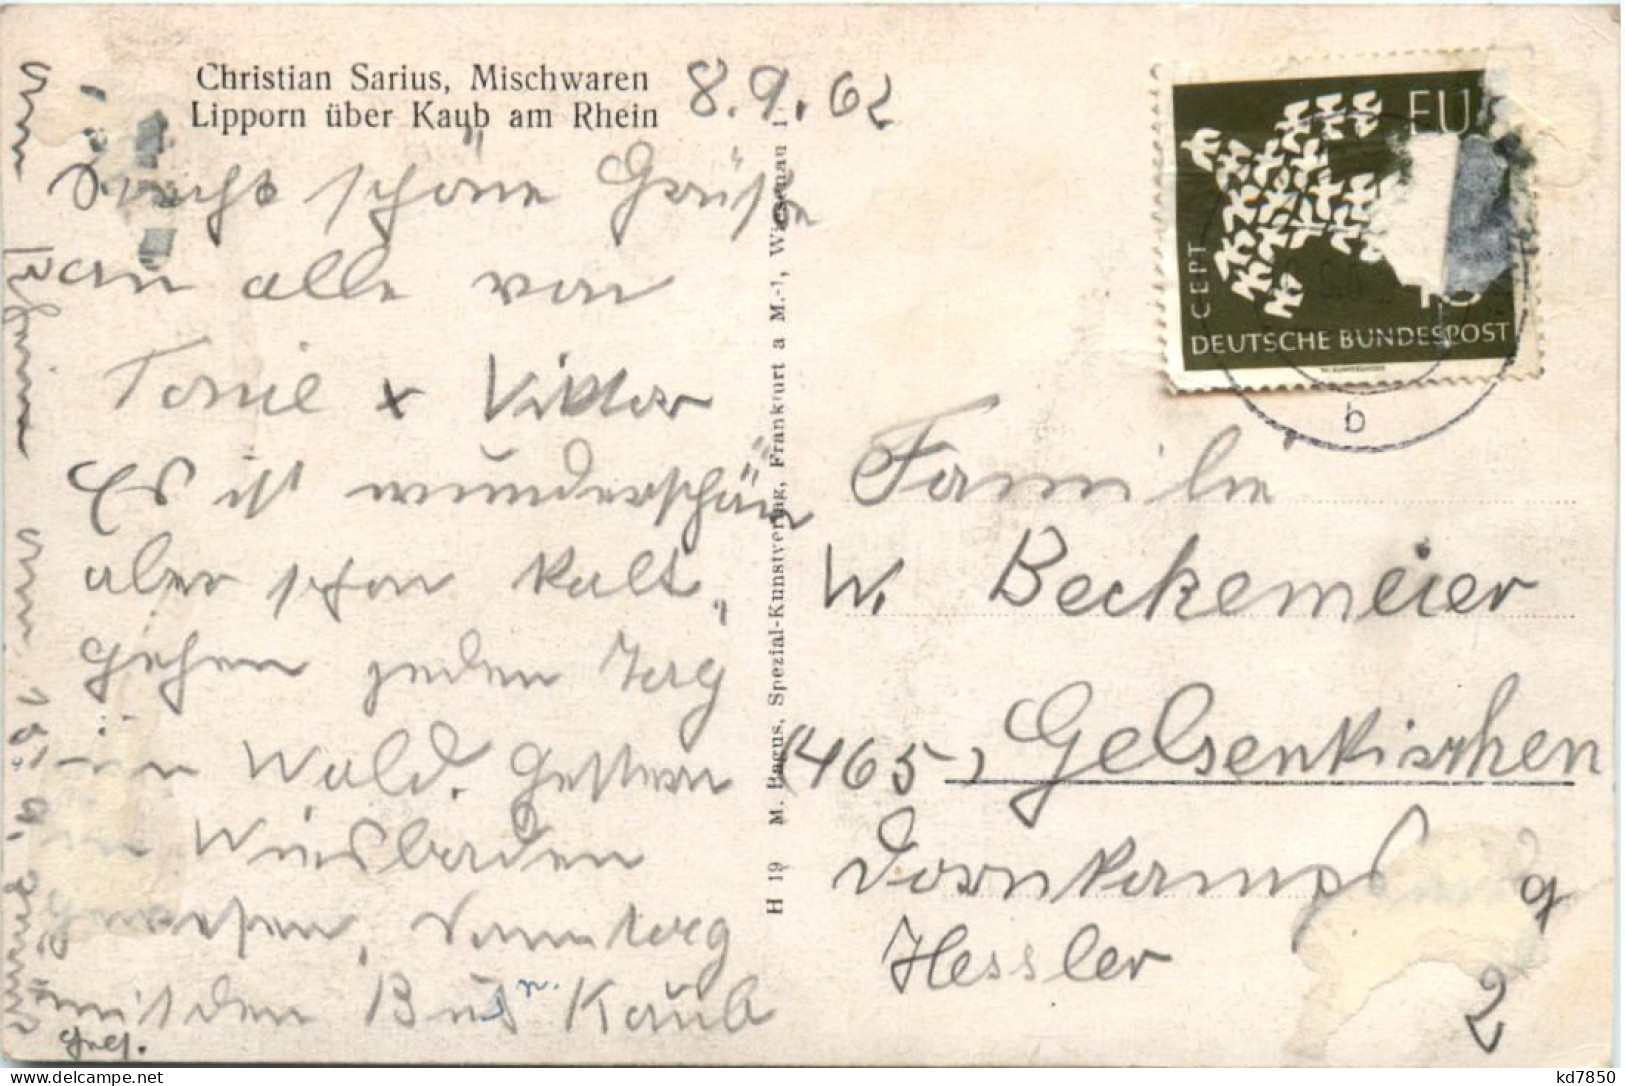 Christian Sarius, Mischwaren
Lipporn über Kaub am Rhein
8.9.62
Recht schöne Grüße
an alle von
Tonie + Viktor
Es ist wunderschön
aber schon kalt,
gehen jeden Tag
in Wald. Gestern
in Wiesbaden
gewesen, Sonntag
mit den Bus n. Kaub
am Rhein
am 15. 9.
H 19 M. Bagus, Spezial-Kunstverlag, Frankfurt a M.-1, Wiesenau 1
EU
CEPT
10
DEUTSCHE BUNDESPOST
b
Familie
W. Beckemeier
(465) Gelsenkirchen
Dornkamp
Hessler
2
kd7850